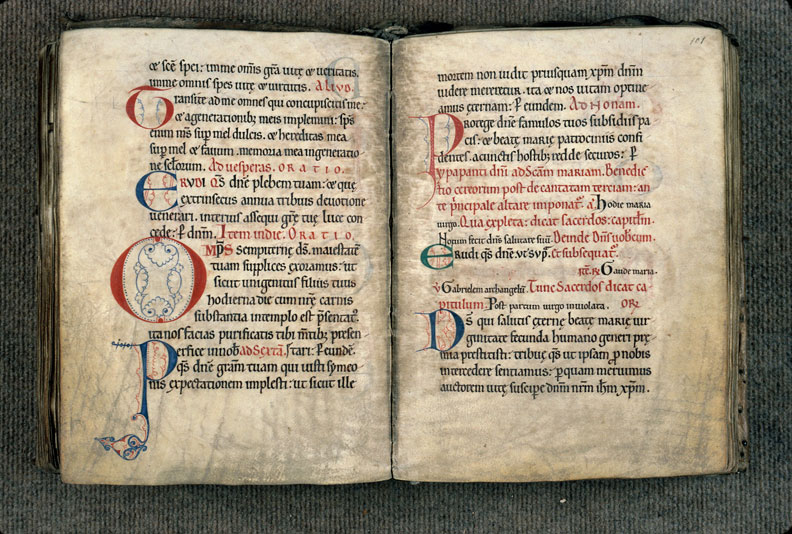 & sc̄e spei: In me om̄is gr̄a uitę & ueritatis.
In me omnis spes uitę & uirtutis. Aliud.
Transite ad me omnes qui concupiscitis me:
& a generationib; meis implemini: sp̄s
enim m̄s sup mel dulcis. & hereditas mea
sup mel & fauum. memoria mea in generatio
ne sc̄lorum. Ad uesperas. ORATIO.
ERUDI q̄s dn̄e plebem tuam: & quę
extrinsecus annua tribuis deuotione
uenerari. interius assequi gr̄ę tuę luce con
cede: P dn̄m. Item in die. ORATIO.
OMP̄S sempiternę ds̄. maiestatē
tuam supplices exoramus: ut
sicut unigenitus filius tuus
hodierna die cum nr̄ę carnis
substantia in templo est p̄sentatꝰ.
ita nos facias purificatis tibi m̄tib; presen
tari: P eundē. Ad sextā.
Perfice in nob̄
q̄s dn̄e gr̄am tuam qui iusti symeo
nis expectationem implesti: ut sicut ille
101
mortem non uidit priusquam xp̄m dn̄m
uidere mereretur. ita & nos uitam optine
amus ęternam: P eundem. Ad Nonam.
Protege dn̄e famulos tuos subsidiis pa
cis: & beatę marię patrociniis confi
dentes. a cunctis hostib; redde securos: P
Ypapanti dn̄i ad Sc̄am mariam. Benedic
tio cereorum post decantatam terciam: an
te p̄ncipale altare imponatꝰ. a᷑ Hodie maria
uirgo. Qua expleta: dicat sacerdos: capitlm̄.
Notum fecit dn̄s salutare suū. Deinde Dn̄s uobcum.
Erudi q̄s dn̄e. ut sup̄. Et subsequatꝰ.
R̷ Gaude maria.
V̷ Gabrielem archangelū. Tunc Sacerdos dicat ca
pitulum. Post partum uirgo inuiolata. OR̄
Ds̄ qui salutis ęternę beatę marię uir
ginitate fecunda humano generi pre
mia prestitisti: tribue q̄s ut ipsam p nobis
intercedere sentiamus: p quam meruimus
auctorem uitę suscipe dn̄m nr̄m ih̄m xp̄m.